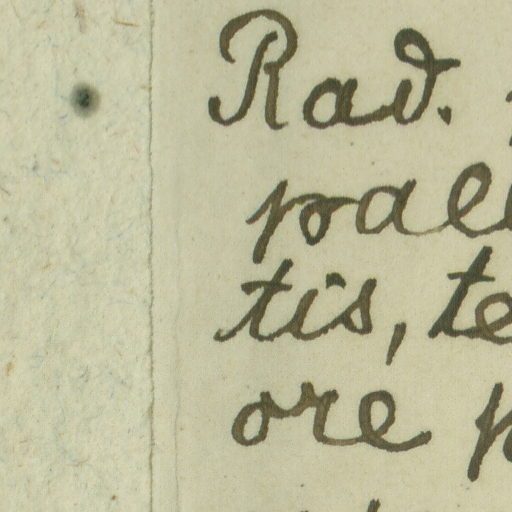 Rad.
pall
tis, te
ore p